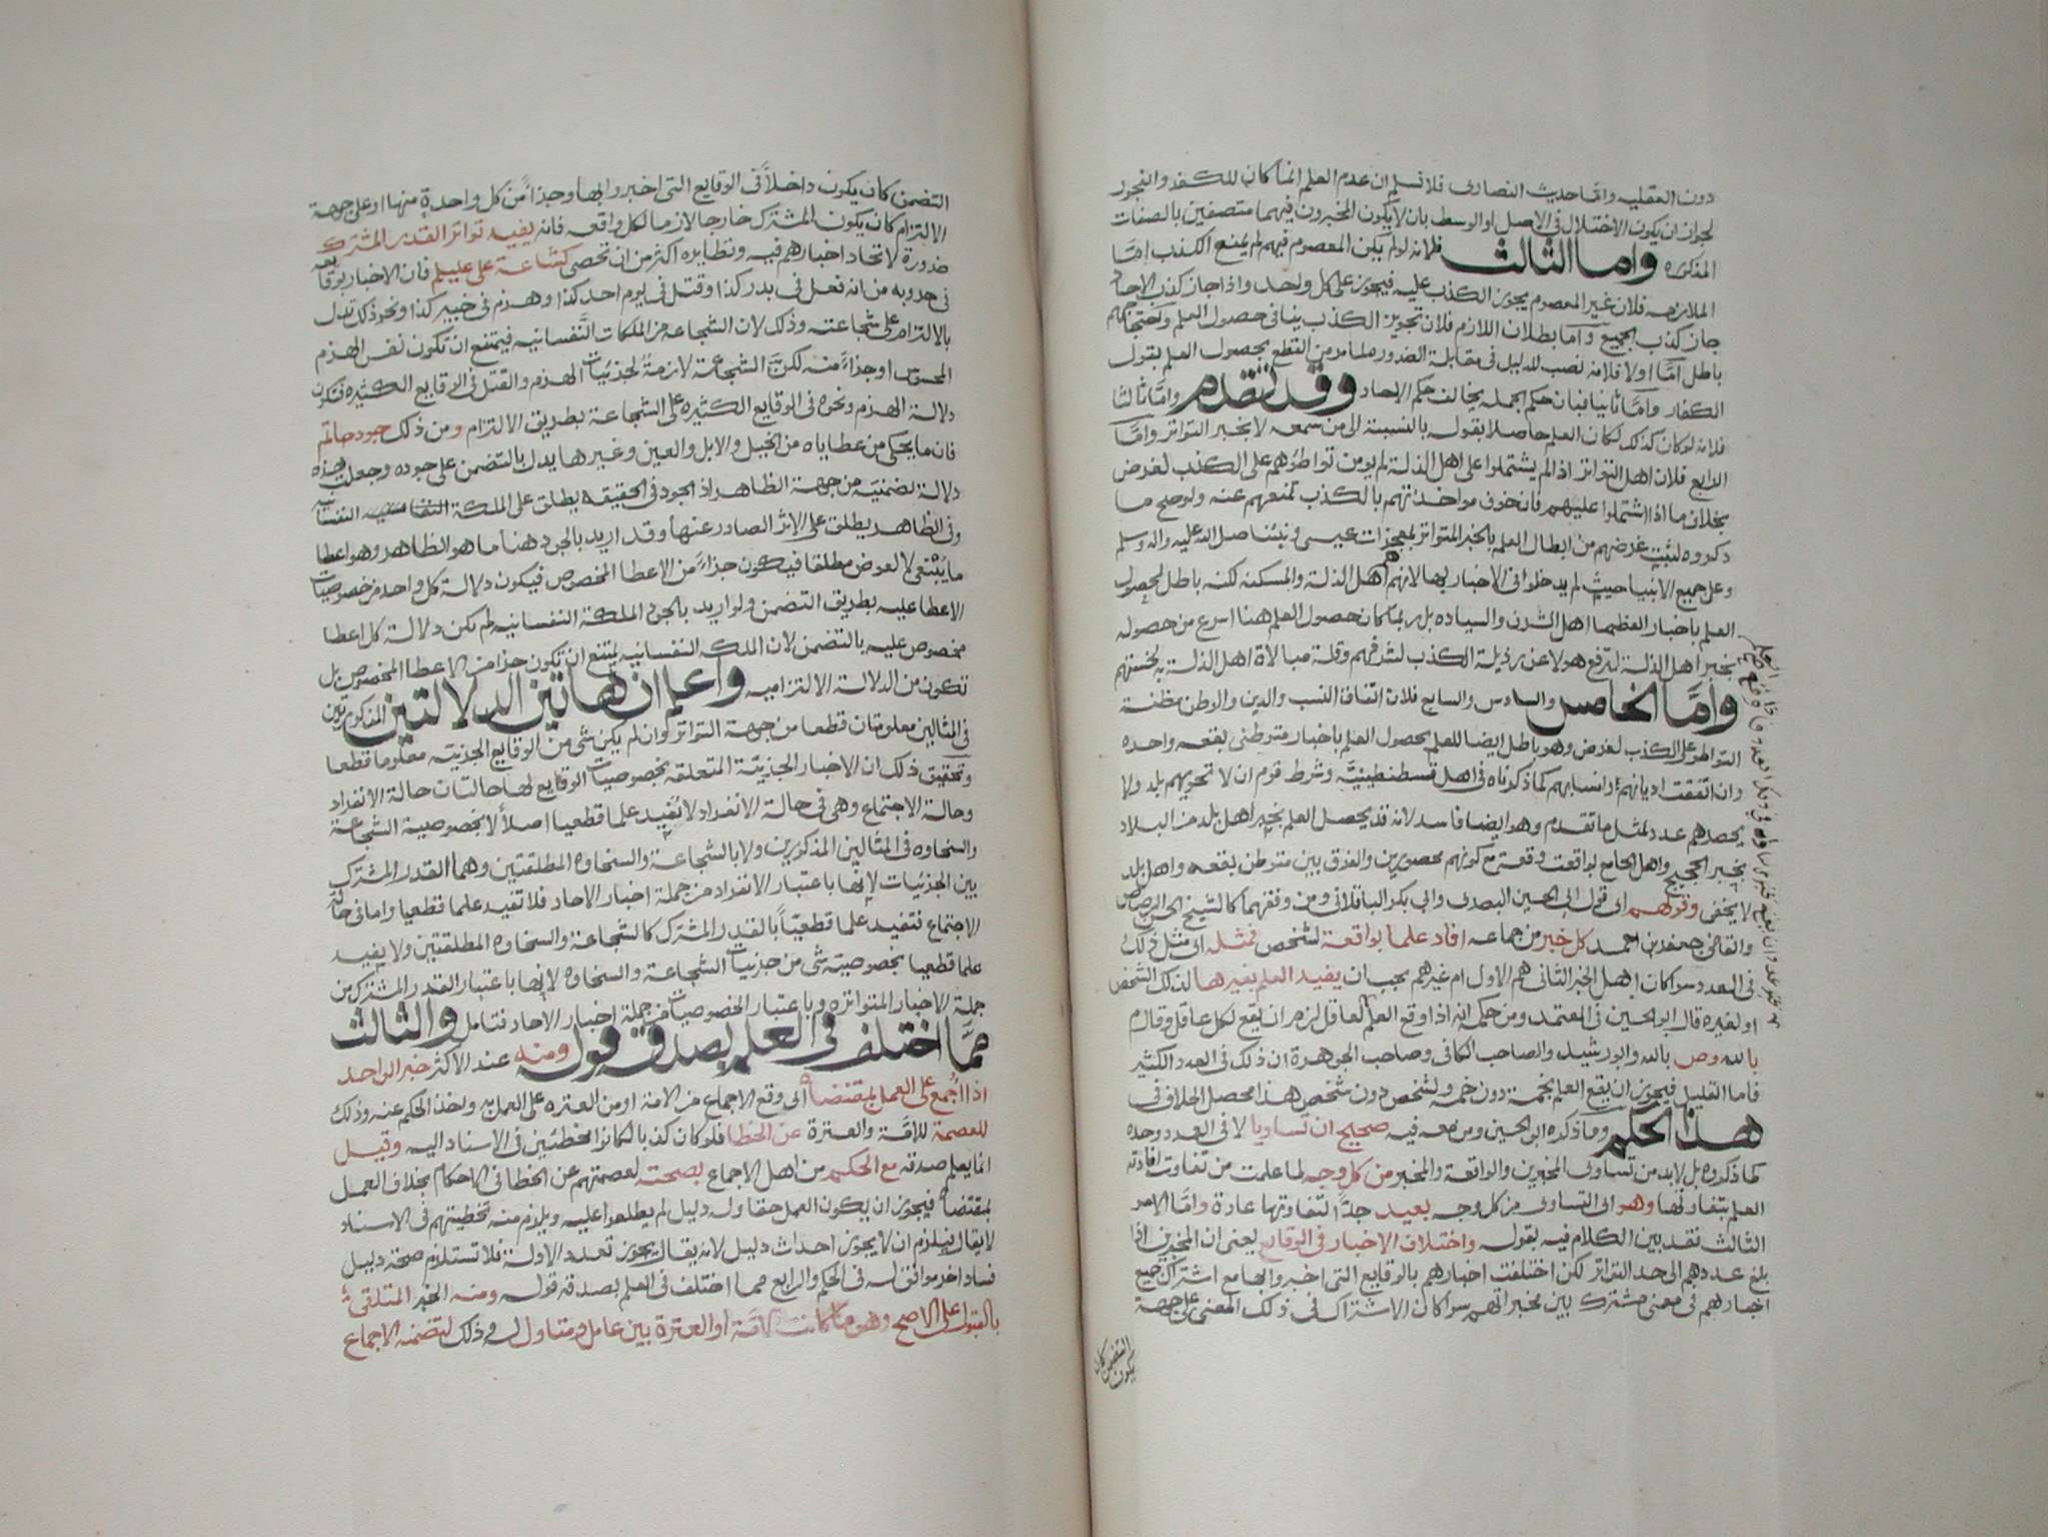 دون العقليه واما حديث النصارى فلا نسلم ان عدم العلم انما كان للكفر والفجور
لجواز ان يكون الاختلال في الاصل او الوسط بان لا يكون المخبرون فيهما متصفين بالصفات
المذكوره واما الثالث فلانه لو لم يكن المعصوم فيهم لم يمتنع الكذب اما
الملازمه فلان غير المعصوم يجوز الكذب عليه فيجوز على كل واحد واذا جاز كذب الاحاد
جاز كذب الجميع واما بطلان اللازم فلان تجويز الكذب ينافي حصول العلم واحتجاجهم
باطل اما اولا فلانه نصب للدليل في مقابلة الضروره لما مر من القطع بحصول العلم بقول
الكفار واما ثانيا فبان حكم الجمله يخالف حكم الاحاد وقد تقدم واما ثالثا
فلانه لو كان كذلك لكان العلم حاصلا بقوله بالنسبة الى من سمعه لا بخبر التواتر واما
الرابع فلان اهل التواتر اذا لم يشتملوا على اهل الذلة لم يومن تواطؤهم على الكذب لغرض
بخلاف ما اذا اشتملوا عليهم فان خوف مواخذتهم بالكذب تمنعهم عنه ولو صح ما
ذكروه لثبت غرضهم من ابطال العلم بالخبر المتواتر بمعجزات عيسى ونبينا صلى الله عليه واله وسلم
وعلى جميع الانبيا حيث لم يدخلوا في الاخبار بها لانهم اهل الذلة والمسكنه لكنه باطل لحصول
العلم باخبار العظما اهل الشرف والسياده بل ربما كان حصول العلم هنا اسرع من حصوله
بخبر اهل الذلة لترفع هولا عن رذيلة الكذب لشرفهم وقلة مبالاة اهل الذلة به لخستهم
واما الخامس والسادس والسابع فلان اتفاق النسب والدين والوطن مظنة
التواطو على الكذب لغرض وهو باطل ايضا للعلم بحصول العلم باخبار متوطني بقعه واحده
وان اتفقت اديانهم وانسابهم كما ذكرناه في اهل قسطنطينيه وشرط قوم ان لا تحويهم بلد ولا
يحصدهم عدد لمثل ما تقدم وهو ايضا فاسد لانه قد يحصل العلم بخبر اهل بلد من البلاد
بخبر الحجيج واهل الجامع بواقعة وقعت مع كونهم محصورين والفرق بين متوطن بقعه واهل بلد
لا يخفى وقولهم اي قول ابي الحسين البصري وابي بكر الباقلاني ومن وفقهما كالشيخ الحسن الرصاص
والقاضي جعفر بن احمد كل خبر من جماعه افاد علما بواقعة لشخص فمثله اي مثل ذلك
في العدد سوا كان اهل الخبر الثاني هم الاول ام غيرهم يجب ان يفيد العلم بغيرها لذلك الشخص
او لغيره قال ابو الحسين في المعتمد ومن حكمه انه اذا وقع العلم لعاقل لزم ان يقع لكل عاقل وقال م
بالله وص بالله وابو رشيد والصاحب الكافي وصاحب الجوهرة ان ذلك في العدد الكثير
فاما القليل فيجوز ان يقع العلم بخمسة دون خمسه ولشخص دون شخص هذا محصل الخلاف في
هذا الحكم وما ذكره ابو الحسين ومن معه فيه صحيح ان تساويا لا في العدد وحده
كما ذكروه بل لا بد من تساوي المخبرين والواقعة والمخبر من كل وجه لما علمت من تفاوت افادته
العلم بتفاوتها وهو اي التساوي من كل وجه بعيد جدا لتفاوتها عادة واما الامر
الثالث فقد بين الكلام فيه بقوله واختلاف الاخبار في الوقايع يعني ان المخبرين اذا
بلغ عددهم الى حد التواتر لكن اختلفت اخبارهم بالوقايع التي اخبروا بها مع اشتراك جميع
اخبارهم في معنى مشترك بين مخبراتهم سوا كان الاشتراك في ذلك المعنى على جهة
التضمن كان يكون
التضمن كان يكون داخلا في الوقايع التي اخبروا بها وجزا من كل واحدة منها او على جهة
الالتزام كان يكون المشترك خارجا لازما لكل واقعه فانه يفيد تواتر القدر المشترك
ضرورة لاتحاد اخبارهم فيه ونظايره اكثر من ان تحصى كشاعة علي عليلم فان الاخبار بوقايعه
في حروبه من انه فعل في بدر كذا وقتل في يوم احد كذا وهزم في خيبر كذا ونحو ذلك تدل
بالالتزام على شجاعته وذلك لان الشجاعه من الملكات النفسانيه فيمتنع ان تكون نفس الهزم
المحسوس او جزاء منه لكن الشجاعة لازمة لجزئيات الهزم والقتل في الوقايع الكثيره فتكون
دلالة الهزم ونحوه في الوقايع الكثيره على الشجاعة بطريق الالتزام ومن ذلك جود حاتم
فان ما يحكى من عطاياه من الخيل والابل والعين وغيرها يدل بالتضمن على جوده وجعل هذه
دلالة تضمنيه من جهة الظاهر اذ الجود في الحقيقه يطلق على الملكة النفسانيه
وفي الظاهر يطلق على الاثر الصادر عنها وقد اريد بالجود هنا ما هو الظاهر وهو اعطا
ما ينبغي لا لعوض مطلقا فيكون جزاء من الاعطا المخصوص فيكون دلالة كل واحد من خصوصيات
الاعطا عليه بطريق التضمن ولو اريد بالجود الملكة النفسانيه لم تكن دلالة كل اعطا
مخصوص عليه بالتضمن لان الملكه النفسانيه يمتنع ان تكون جزا من الاعطا المخصوص بل
تكون من الدلالة الالتزاميه واعلم ان هاتين الدلالتين المذكورتين
في المثالين معلومتان قطعا من جهة التواتر وان لم يكن شي من الوقايع الجزئيه معلوما قطعا
وتحقيق ذلك ان الاخبار الجزئية المتعلقه بخصوصيات الوقايع لها حالتان حالة الانفراد
وحالة الاجتماع وهي في حالة الانفراد لا تفيد علما قطعيا اصلا لا بخصوصية الشجاعة
والسخاوه في المثالين المذكورين ولا بالشجاعة والسخاوه المطلقتين وهما القدر المشترك
بين الجزئيات لانها باعتبار الانفراد من جملة اخبار الاحاد فلا تفيد علما قطعيا واما في حالة
الاجتماع فتفيد علما قطعيا بالقدر المشترك كالشجاعة والسخاوه المطلقتين ولا يفيد
علما قطعيا بخصوصية شي من جزئيات الشجاعة والسخاوه لانها باعتبار القدر المشترك من
جملة الاخبار المتواتره وباعتبار الخصوصيات من جملة اخبار الاحاد فتامل والثالث
مما اختلف في العلم بصدقه قوله ومنه عند الاكثر خبر الواحد
اذا اجمع على العمل بمقتضاه اي وقع الاجماع من الامة او من العتره على العمل به واخذ الحكم عنه وذلك
للعصمة للامة والعترة عن الخطا فلو كان كذبا لكانوا مخطئين في الاسناد اليه وقيل
انما يعلم صدقه مع الحكم من اهل الاجماع بصحته لعصمتهم عن الخطا في الاحكام بخلاف العمل
بمقتضاه فيجوز ان يكون العمل حقا وله دليل لم يطلعوا عليه ويلزم منه تخطيتهم في الاسناد
لا يقال فيلزم ان لا يجوز احداث دليل لانه يقال يجوز تعدد الادلة فلا تستلزم صحة دليل
فساد اخر موافق له في الحكم والرابع مما اختلف في العلم بصدقه قوله ومنه الخبر المتلقى
بالقبول على الاصح وهو ما كانت الامة او العترة بين عامل به ومتاول له وذلك لتضمنه الاجماع